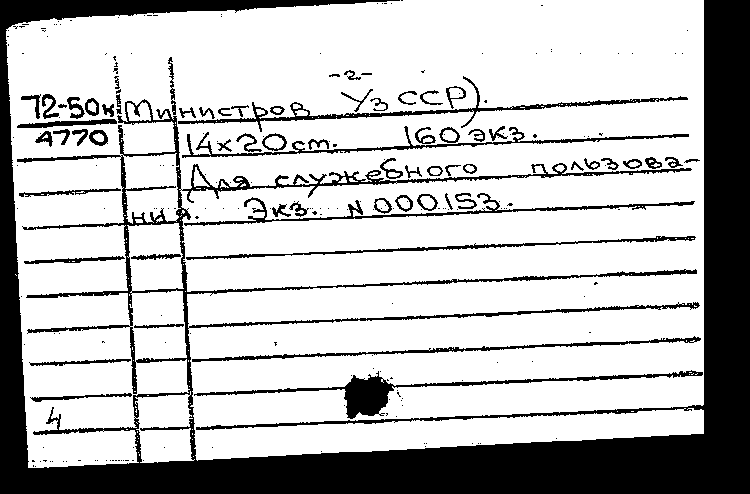 -2-
72-50к Министров УзССР).
4770 14х20ст. 160 экз.
Для служебного пользова-
ния. Экз. N000153.
4